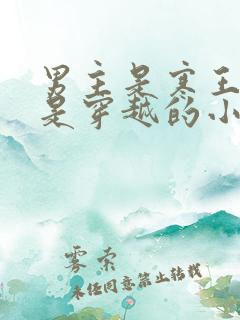 男主是寒王
是穿越的小
雾索
未经同意禁止转载